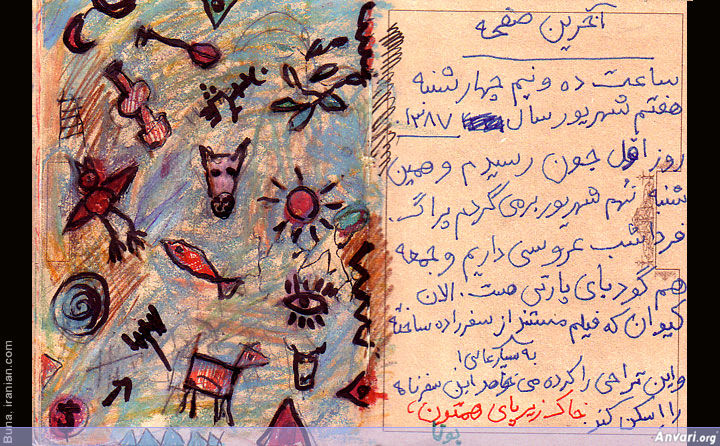 آخرین صفحه
ساعت ده و نیم چهارشنبه
هفتم شهریور سال ۱۳۸۷.
روز اول جون رسیدم و همین
شنبه نهم شهریور برمی گردم پراگ.
فردا شب عروسی داریم و جمعه
هم گودبای پارتی ست. الان
کیوان که فیلم مستند از سفر زاده ساخته
به سبک عالی!
و این تراحی را کرده می خواهد این سفرنامه
را اسکن کند. خاک زیر پای همتون،
بونا
Buna. iranian.com
Anvari.org